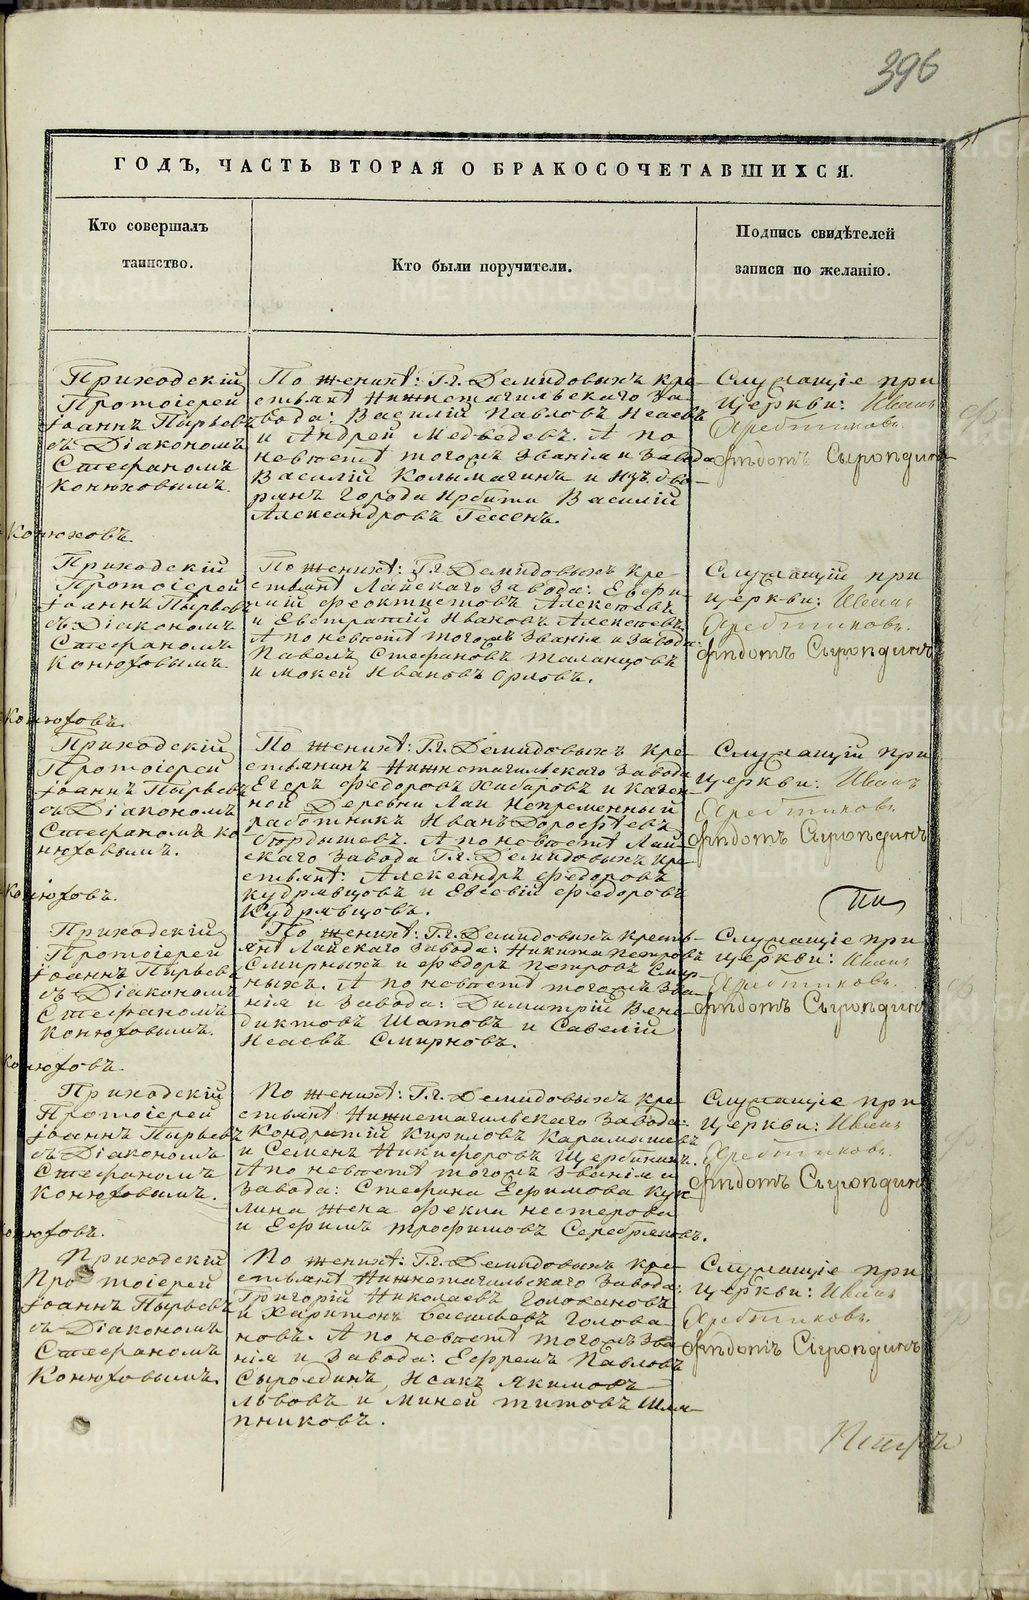 396
ГОДЪ, ЧАСТЬ ВТОРАЯ О БРАКОСОЧЕТАВШИХСЯ.
Кто совершалъ
таинство.
Кто были поручители.
Подпись свидѣтелей
записи по желанію.
Приходскій
Протоіерей
Іоаннъ Пырьевъ
съ Діакономъ
Стефаномъ
Конюховымъ.
По женихѣ: Гг. Демидовыхъ кре-
стьянѣ Нижнетагильскаго За-
вода: Василій Павловъ Исаевъ
и Андрей Медведевъ. А по
невѣстѣ тогожъ званія и завода
Василій Колымагинъ и Изъ дво-
рянъ Города Ирбита Василій
Александровъ Гессенъ.
Служащіе при
Церкви: Иванъ
Хребтиковъ.
Ѳедотъ Сыропдинъ
Конюховъ.
Приходскій
Протоіерей
Іоаннъ Пырьевъ
съ Діакономъ
Стефаномъ
Конюховымъ.
По женихѣ: Гг. Демидовыхъ кре-
стьянѣ Лайскаго Завода: Ефри-
мій Феоктистовъ Алексеевъ
и Евстратій Ивановъ Алексеевъ.
А по невѣстѣ тогожъ званія и завода:
Павелъ Стефановъ Таланцовъ
и Мокей Ивановъ Орловъ.
Служащій при
церкви: Иванъ
Хребтиковъ.
Ѳедотъ Сыропдинъ
Конюховъ.
Приходскій
Протоіерей
Іоаннъ Пырьевъ
съ Діакономъ
Стефаномъ Ко
нюховымъ.
По женихѣ: Гг. Демидовыхъ кре-
стьянинъ Нижнетагильскаго Завода
Егеръ Федоровъ Хибаровъ и казен-
ной Деревни Лаи Непременный
работникъ Иванъ Дорофѣевъ
Бурдышевъ. А по невѣстѣ Лай-
скаго Завода Гг. Демидовыхъ кре-
стьянѣ: Александръ Федоровъ
Кудрявцовъ и Евсевій Федоровъ
Кудрявцовъ.
Служащій при
церкви: Иванъ
Хребтиковъ.
Ѳедотъ Сыропдинъ
Конюховъ.
Приходскій
Протоіерей
Іоаннъ Пырьевъ
съ Діакономъ
Стефаномъ
Конюховымъ.
По женихѣ: Гг. Демидовыхъ кресть-
янѣ Лайскаго Завода: Никита Петровъ
Смирныхъ и Федоръ Петровъ Смир-
ныхъ. А по невѣстѣ тогожъ зва-
нія и Завода: Димитрій Вене-
диктовъ Шатовъ и Савелій
Исаевъ Смирновъ.
Служащіе при
церкви: Иванъ
Хребтиковъ.
Ѳедотъ Сыропдинъ
Конюховъ.
Приходскій
Протоіерей
Іоаннъ Пырьевъ
съ Діакономъ
Стефаномъ
Конюховымъ.
По женихѣ: Гг. Демидовыхъ кре-
стьянѣ Нижнетагильскаго Завода:
Кондратій Кириловъ Карамышевъ
и Семенъ Никифоровъ Щербининъ.
А по невѣстѣ тогожъ званія и
завода: Стефана Ефимова Кук-
лина жена Фекла Нестерова
и Ефимъ Трофимовъ Серебряковъ.
Служащіе при
церкви: Иванъ
Хребтиковъ.
Ѳедотъ Сыропдинъ
Конюховъ.
Приходскій
Протоіерей
Іоаннъ Пырьевъ
съ Діакономъ
Стефаномъ
Конюховымъ.
По женихѣ: Гг. Демидовыхъ кре-
стьянѣ Нижнетагильскаго Завода:
Григорій Николаевъ Голохановъ
и Харитонъ Васильевъ Голова-
новъ. А по невѣстѣ тогожъ зва-
нія и завода: Ефремъ Павловъ
Сыроединъ, Исакъ Якимовъ
Львовъ и Миней Титовъ Шля-
пниковъ.
Служащіе при
церкви: Иванъ
Хребтиковъ.
Ѳедотъ Сыропдинъ
METRIKI.GASO-URAL.RU